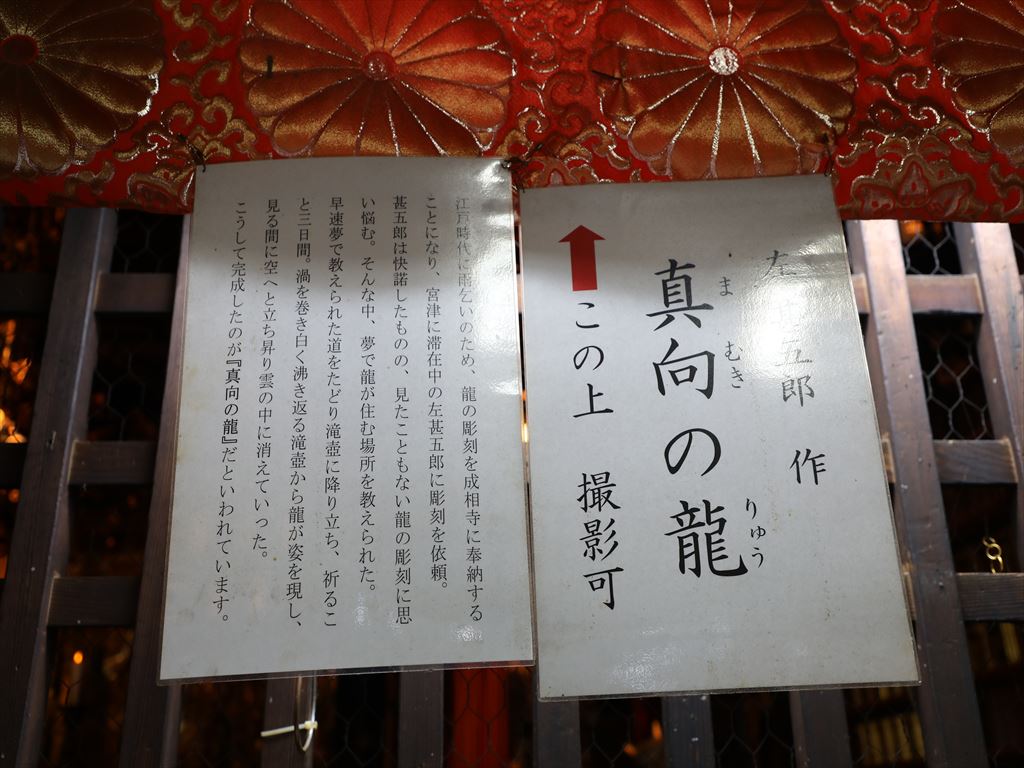 左甚五郎 作
ま むき りゅう
真向の龍
この上 撮影可
江戸時代に雨乞いのため、龍の彫刻を成相寺に奉納する
ことになり、宮津に滞在中の左甚五郎に彫刻を依頼。
甚五郎は快諾したものの、見たこともない龍の彫刻に思
い悩む。そんな中、夢で龍が住む場所を教えられた。
早速夢で教えられた道をたどり滝壺に降り立ち、祈るこ
と三日間。渦を巻き白く沸き返る滝壺から龍が姿を現し、
見る間に空へと立ち昇り雲の中に消えていった。
こうして完成したのが『真向の龍』だといわれています。